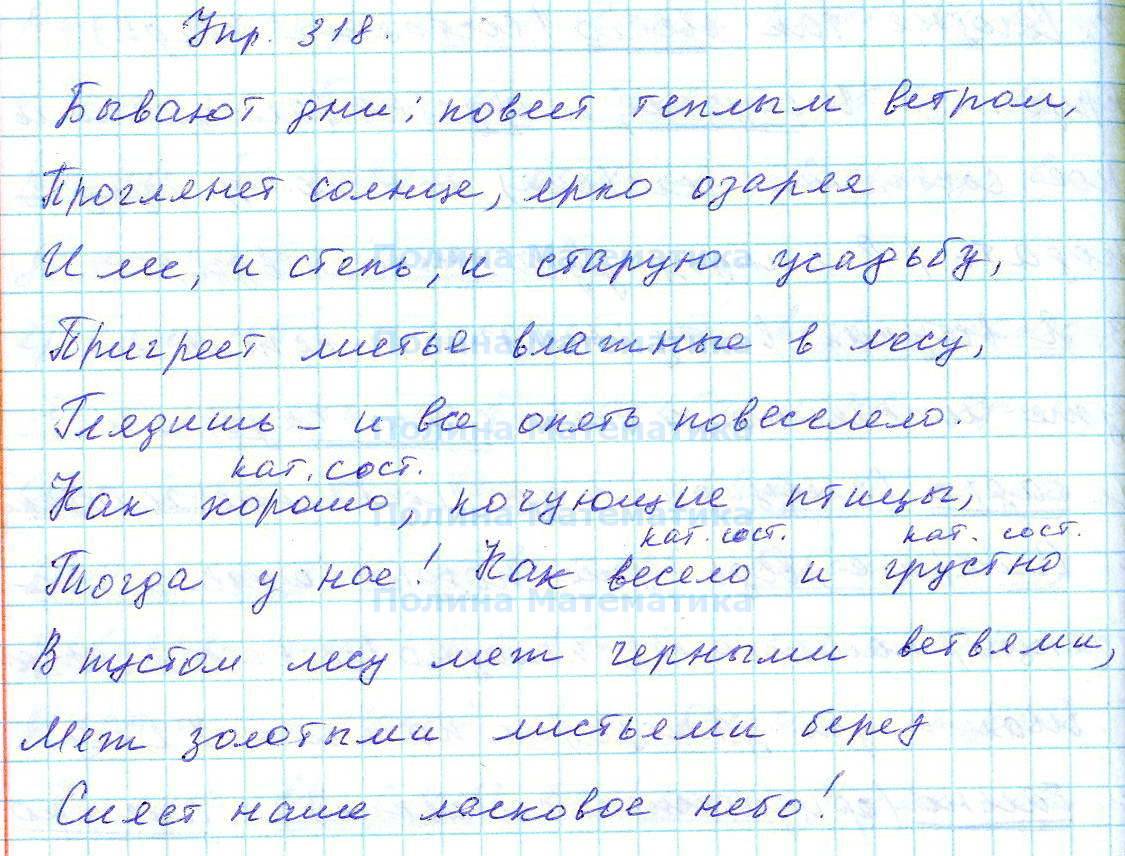 Упр. 318.
Бывают дни: повеет теплым ветром,
Проглянет солнце, ярко озаряя
И лес, и степь, и старую усадьбу,
Пригреет листья влажные в лесу,
Глядишь – и все опять повеселело.
кат. сост.
Как хорошо, кочующие птицы,
кат. сост. кат. сост.
Тогда у нас! Как весело и грустно
В пустом лесу меж черными ветвями,
Меж золотыми листьями берез
Синеет наше ласковое небо!
Полина Математика
Полина Математика
Полина Математика
Полина Математика
Полина Математика